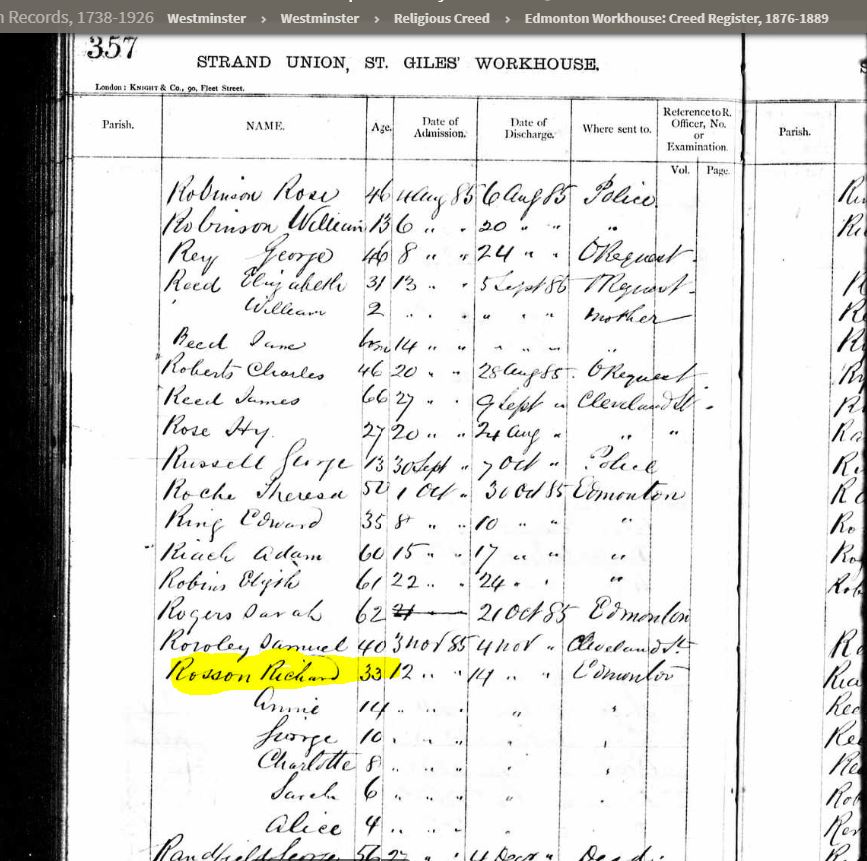 n Records, 1738-1926 Westminster › Westminster › Religious Creed › Edmonton Workhouse: Creed Register, 1876-1889
357
STRAND UNION, ST. GILES' WORKHOUSE.
London: KNIGHT & Co., 90, Fleet Street.
Parish. NAME. Age. Date of Admission. Date of Discharge. Where sent to. Reference to R. Officer, No. or Examination. Parish.
Vol. Page.
Robinson Rose 46 4 Aug 85 6 Aug 85 Police
Robinson William 13 6 " " 20 " " "
Rey George 46 8 " " 24 " " O Request
Reed Elizabeth 31 13 " " 5 Sept 85 O Request
William 2 " " " " " " mother
Reed Jane born 14 " " " " " "
Roberts Charles 46 20 " " 28 Aug 85 O Request
Reed James 66 27 " " 9 Sept " Cleveland St
Rose Hy 27 20 " " 24 Aug " " "
Russell George 13 30 Sept " 7 Oct " Police
Roche Theresa 50 1 Oct " 30 Oct 85 Edmonton
King Edward 35 8 " " 10 " " "
Riach Adam 60 15 " " 17 " " "
Robins Elizth 61 22 " " 24 " " "
Rogers Sarah 62 21 21 Oct 85 Edmonton
Rowley Samuel 40 3 Nov 85 4 Nov " Cleveland St
Rosson Richard 33 12 " " 14 " " Edmonton
Annie 14 " " " " "
George 10 " " " " "
Charlotte 8 " " " " "
Sarah 6 " " " "
Alice 4 " " " "
56 4 Decr " Dead